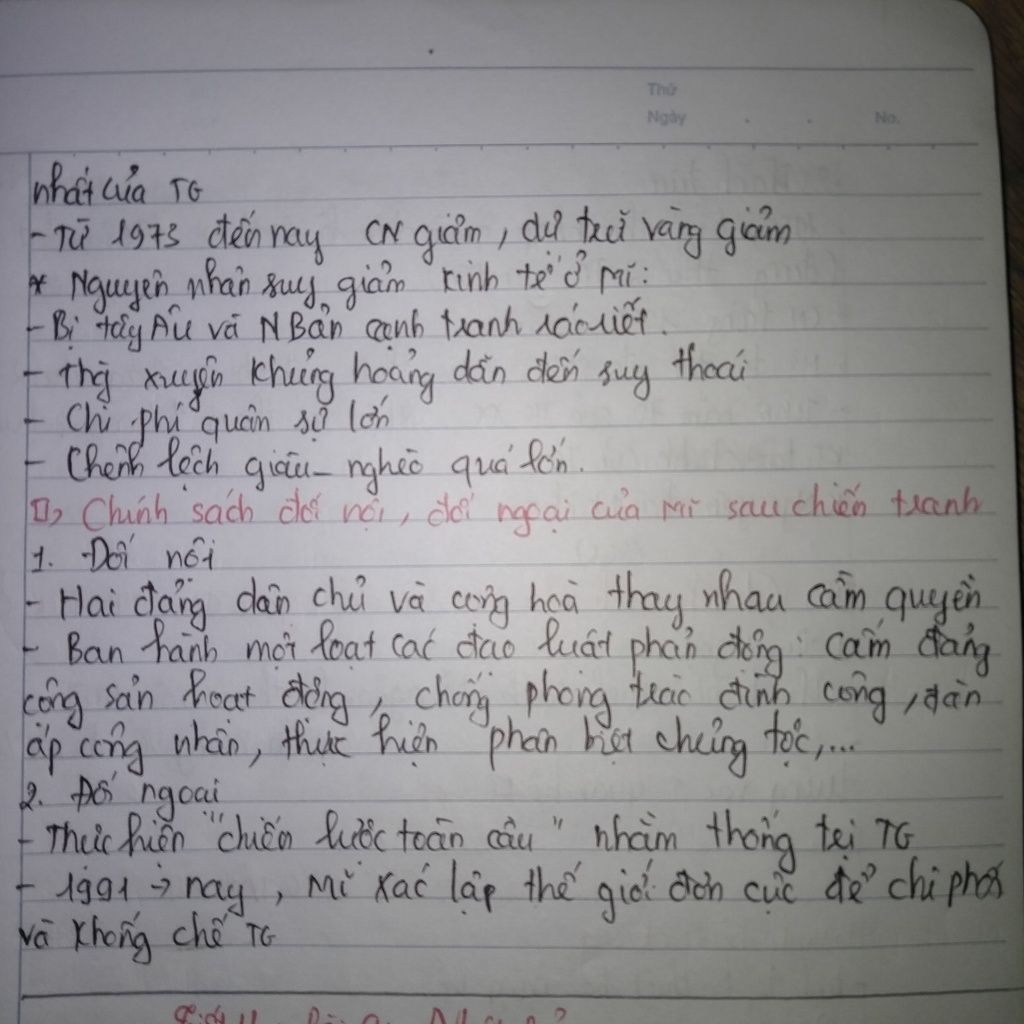 Thứ
Ngày . . No.
nhất của TG
- Từ 1973 đến nay CN giảm, dự trữ vàng giảm
* Nguyên nhân suy giảm kinh tế ở Mĩ:
- Bị tây Âu và N Bản cạnh tranh ráo riết.
- Thg xuyên khủng hoảng dẫn đến suy thoái
- Chi phí quân sự lớn
- Chênh lệch giàu - nghèo quá lớn.
II, Chính sách đối nội, đối ngoại của Mĩ sau chiến tranh
1. Đối nội
- Hai đảng dân chủ và cộng hoà thay nhau cầm quyền
- Ban hành một loạt các đạo luật phản động: Cấm đảng
cộng sản hoạt động, chống phong trào đình công, đàn
áp công nhân, thực hiện phân biệt chủng tộc,...
2. Đối ngoại
- Thực hiện "chiến lược toàn cầu" nhằm thống trị TG
- 1991 → nay, Mĩ xác lập thế giới đơn cực để chi phối
và khống chế TG